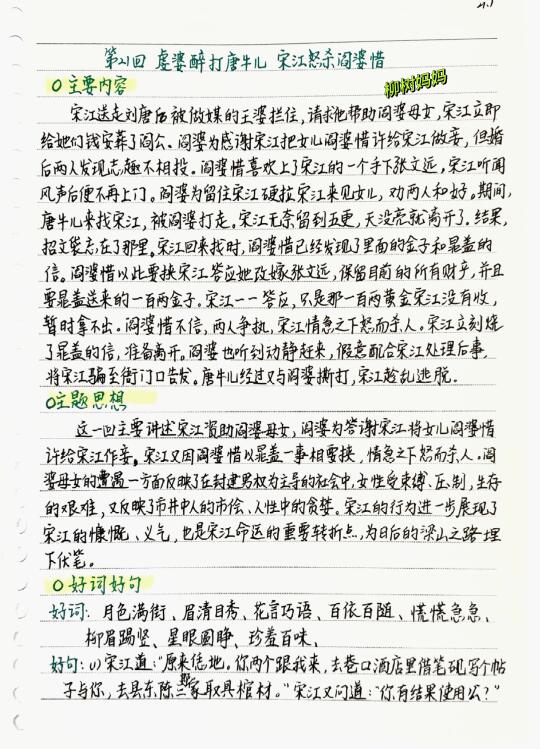 第21回 虔婆醉打唐牛儿 宋江怒杀阎婆惜
柳树妈妈
○主要内容
宋江送走刘唐后被做媒的王婆拦住，请求他帮助阎婆母女，宋江立即
给她们钱安葬了阎公。阎婆为感谢宋江把女儿阎婆惜许给宋江做妾，但婚
后两人发现志趣不相投。阎婆惜喜欢上了宋江的一个手下张文远，宋江听闻
风声后便不再上门。阎婆为留住宋江硬拉宋江来见女儿，劝两人和好。期间，
唐牛儿来找宋江，被阎婆打走。宋江无奈留到五更，天没亮就离开了。结果，
招文袋忘在了那里。宋江回来找时，阎婆惜已经发现了里面的金子和晁盖的
信。阎婆惜以此要挟宋江答应她改嫁张文远，保留目前的所有财产，并且
要晁盖送来的一百两金子。宋江一一答应，只是那一百两黄金宋江没有收，
暂时拿不出。阎婆惜不信，两人争执，宋江情急之下怒而杀人。宋江立刻烧
了晁盖的信，准备离开。阎婆也听到动静赶来，假意配合宋江处理后事
将宋江骗至衙门口告发。唐牛儿经过又与阎婆撕打，宋江趁乱逃脱.
○主题思想
这一回主要讲述宋江资助阎婆母女，阎婆为答谢宋江将女儿阎婆惜
许给宋江作妾。宋江又因阎婆惜以晁盖一事相要挟，情急之下怒而杀人。阎
婆母女的遭遇一方面反映了在封建男权为主导的社会中，女性受束缚、压制，生存
的艰难，又反映了市井中人的市侩、人性中的贪婪。宋江的行为进一步展现了
宋江的慷慨、义气，也是宋江命运的重要转折点，为日后的梁山之路埋
下伏笔。
○好词好句
好词：月色满街、眉清目秀、花言巧语、百依百随、慌慌急急、
柳眉踢竖、星眼圆睁、珍羞百味、
好句：(1)宋江道：“原来恁地。你两个跟我来，去巷口酒店里借笔砚写个帖
子与你，去县东陈三郎家取具棺材。”宋江又问道：“你有结果使用么？”